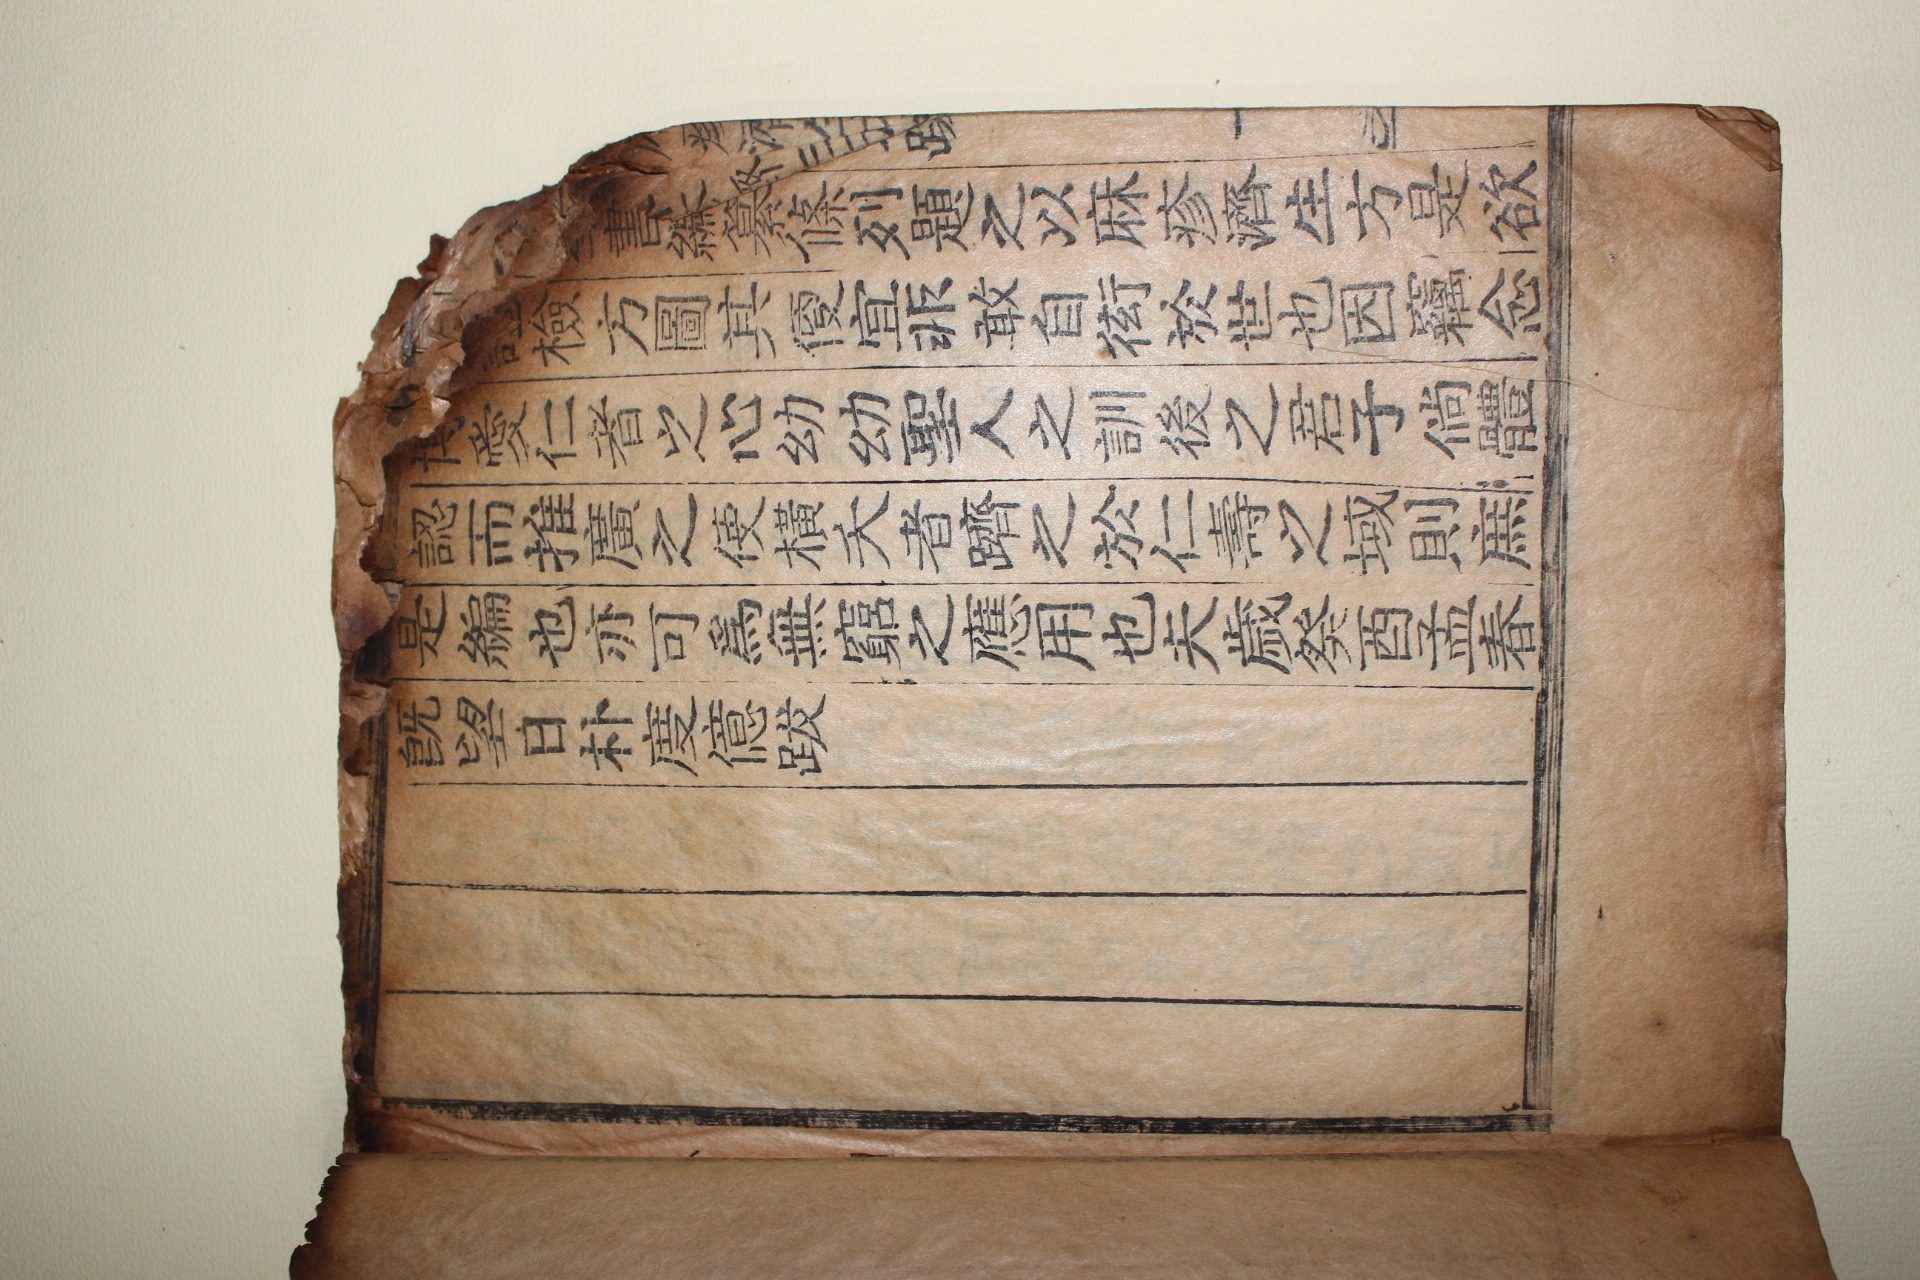 書纂條列題之以麻疹濟生方是欲
檢方圖其便宜非敢自衒於世也因竊念
愛仁者之心幼幼聖人之訓後之君子倘體
認而推廣之使橫夭者躋之於仁壽之域則庶
是編也亦可爲無窮之應用也夫歲癸酉孟春
旣望日朴慶億跋